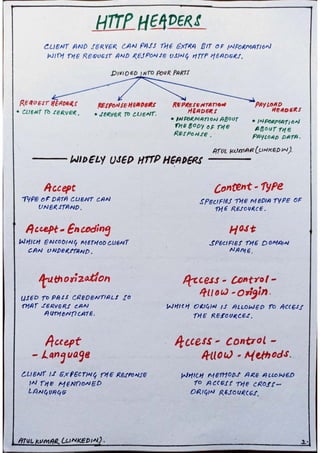 HTTP HEADERS
CLIENT AND SERVER CAN PASS THE EXTRA BIT OF INFORMATION
WITH THE REQUEST AND RESPONSE USING HTTP HEADERS.
DIVIDED INTO FOUR PARTS
REQUEST HEADERS
• CLIENT TO SERVER.
RESPONSE HEADERS
• SERVER TO CLIENT.
REPRESENTATION
HEADERS
• INFORMATION ABOUT
THE BODY OF THE
RESPONSE.
PAYLOAD
HEADERS
• INFORMATION
ABOUT THE
PAYLOAD DATA.
ATUL KUMAR (LINKEDIN).
WIDELY USED HTTP HEADERS
Accept
TYPE OF DATA CLIENT CAN
UNERSTAND.
Content-Type
SPECIFIES THE MEDIA TYPE OF
THE RESOURCE.
Accept-Encoding
WHICH ENCODING METHOD CLIENT
CAN UNDERSTAND.
Host
SPECIFIES THE DOMAIN
NAME.
Authorization
USED TO PASS CREDENTIALS SO
THAT SERVERS CAN
AUTHENTICATE.
Access-Control-
Allow-Origin.
WHICH ORIGIN IS ALLOWED TO ACCESS
THE RESOURCES.
Accept
-Language
CLIENT IS EXPECTING THE RESPONSE
IN THE MENTIONED
LANGUAGE
Access-Control-
Allow-Methods.
WHICH METHODS ARE ALLOWED
TO ACCESS THE CROSS-
ORIGIN RESOURCES.
ATUL KUMAR (LINKEDIN).
2.